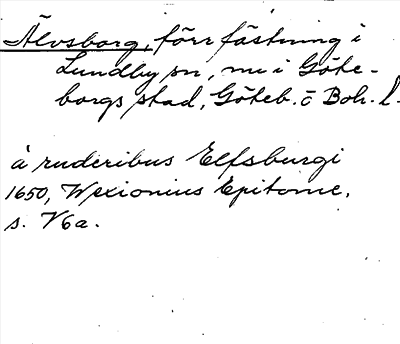 Älvsborg, förr fästning i
Lundby sn, nu i Göte-
borgs stad, Göteb. o Boh. l.
à ruderibus Elfsburgi
1650, Wexionius Epitome,
s. V6a.